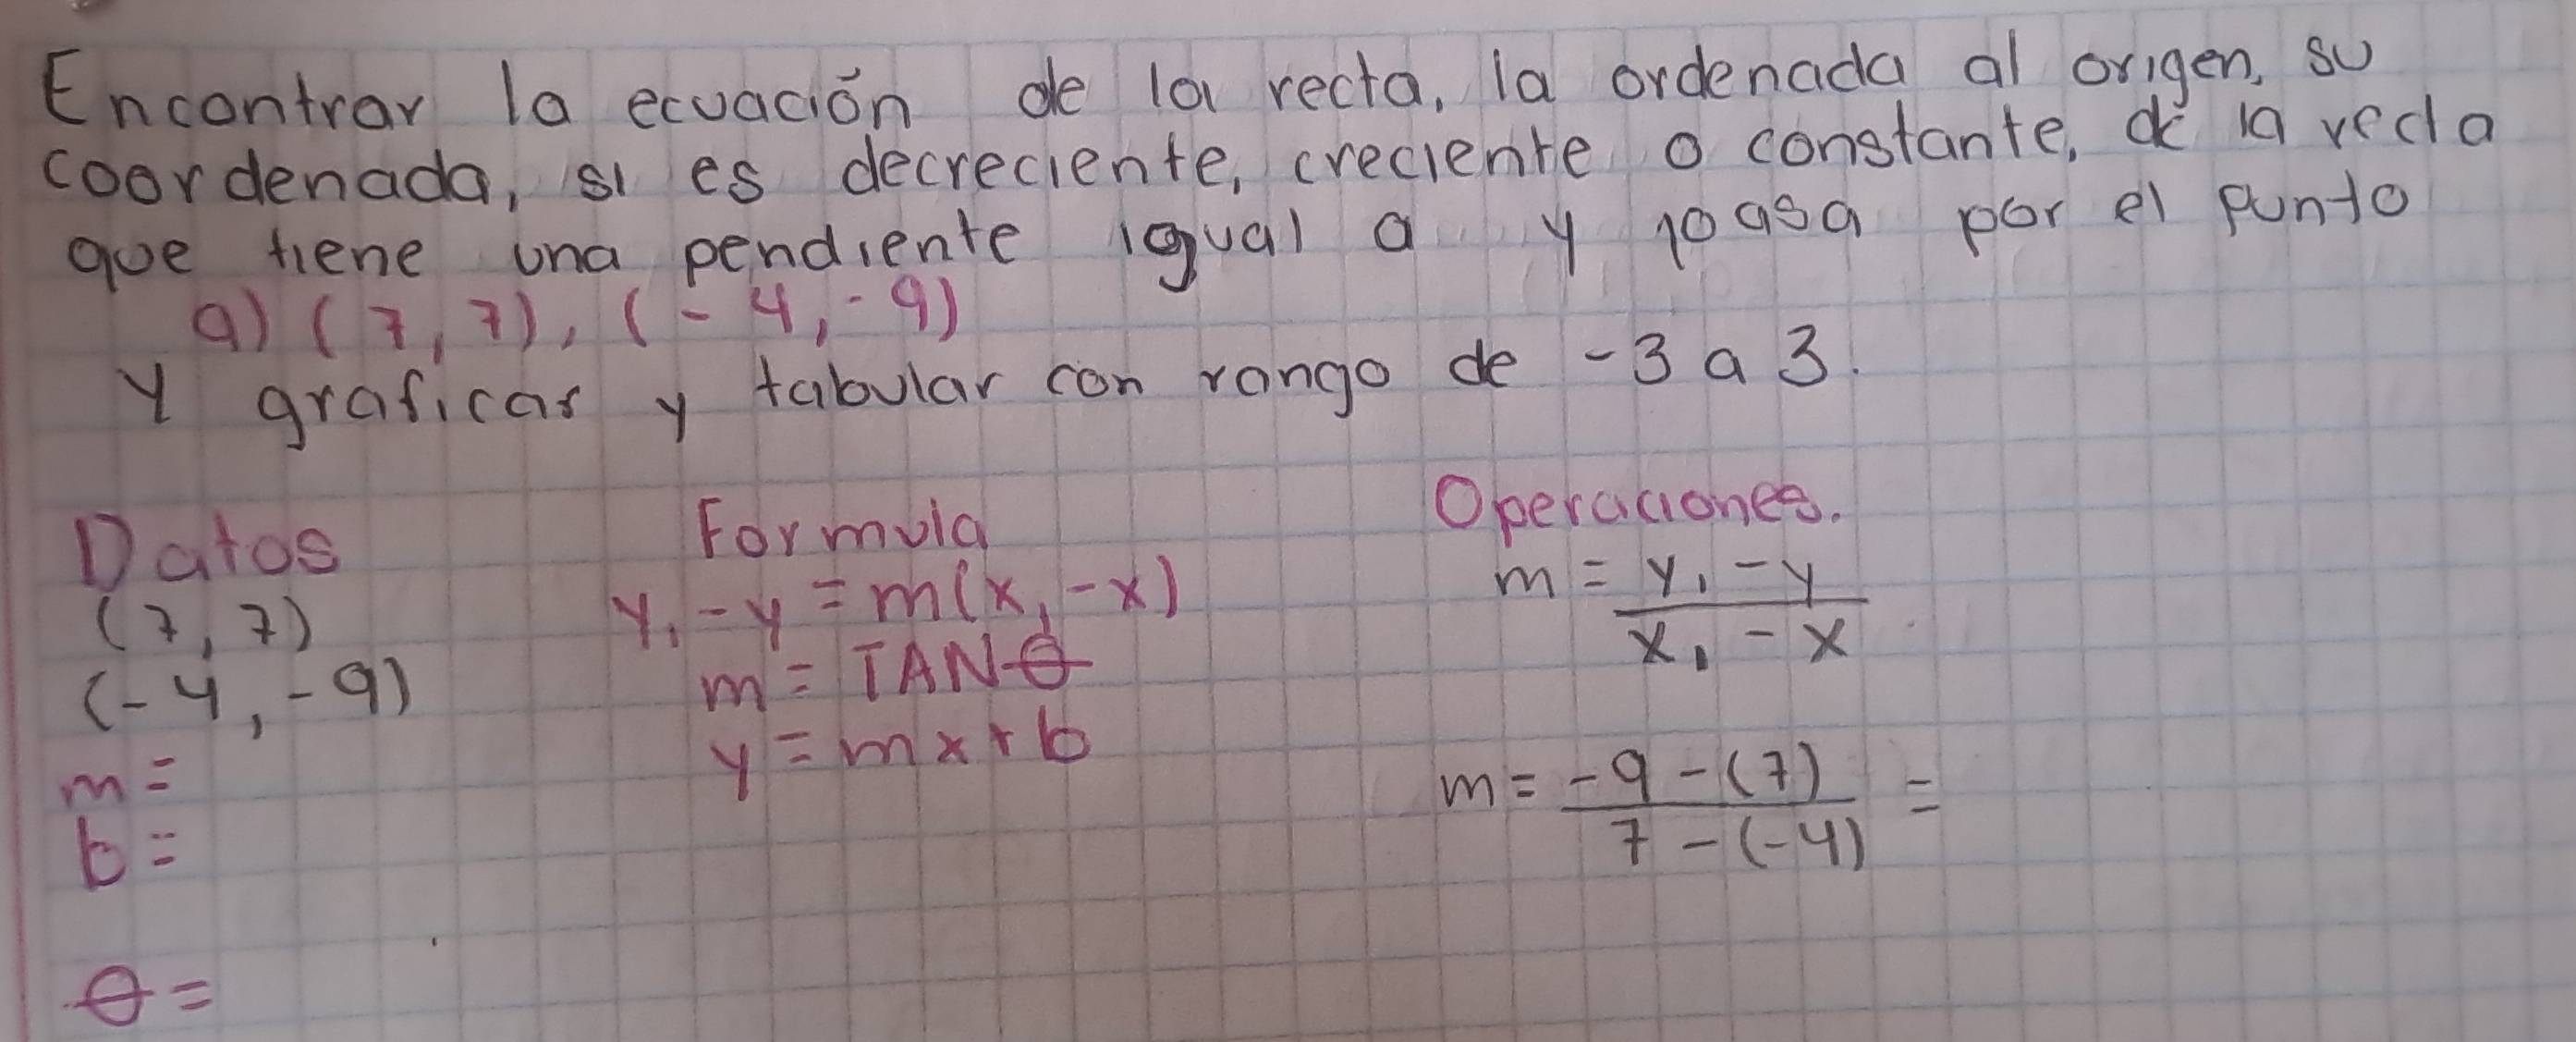 Encontrar la ecuación de la recta, la ordenada al origen, su
coordenada, si es decreciente, creciente o constante, de la recta
que tiene una pendiente igual a y pasa por el punto
a) (7, 7), (-4, -9)
Y graficar y tabular con rango de -3 a 3.
Datos
(7, 7)
(-4, -9)
m =
b =
θ =
Formula
y₁ - y = m(x₁ - x)
m = TAN θ
y = mx + b
Operaciones.
m = y₁ - y
x₁ - x
m = -9 - (7) =
7 - (-4)